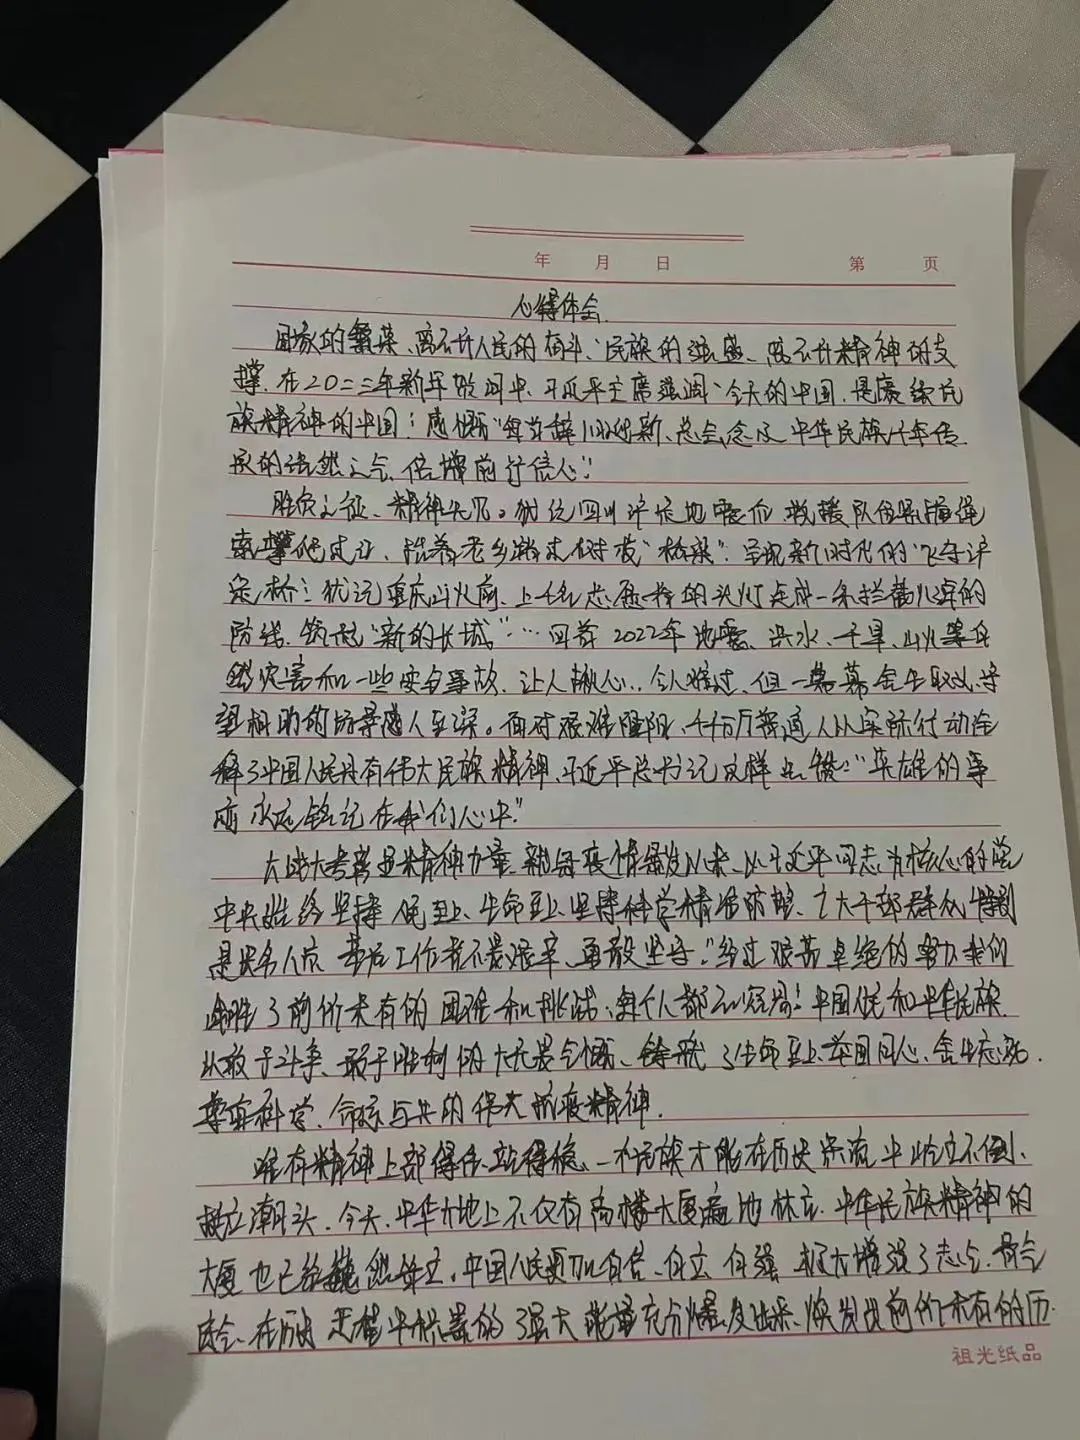 年 月 日 第 页
心得体会
国家的繁荣、离不开人民的奋斗、民族的强盛、离不开精神的支
撑。在二0二三年新年贺词中、习近平主席强调"今天的中国,是赓续民
族精神的中国!感慨"每当辞旧迎新、总会念及中华民族千年传
承的浩然之气、倍增前行信心"。
胜负之征、精神先见。犹忆四川泸定地震后,救援队伍紧临绳
索攀爬过江、搀着老乡踏过树干"桥梁"呈现新时代的"飞夺泸
定桥"犹记重庆山火前、上千名志愿者的头灯连成一条拦截火海的
防线、筑起"新的长城"……回首2022年地震、洪水、干旱、山火等自
然灾害和一些安全事故、让人揪心、令人难过、但一幕幕舍生取义、守
望相助的场景感人至深。面对艰难险阻、千千万万普通人以实际行动诠
释了中国人民具有伟大民族精神、习近平总书记这样点赞:"英雄的事
迹永远铭记在我们心中"
大战大考彰显精神力量、新冠疫情爆发以来、以习近平同志为核心的党
中央始终坚持人民至上、生命至上、坚持科学精准防控、广大干部群众特别
是医务人员、基层工作者不畏艰辛、勇敢坚守"经过艰苦卓绝的努力我们
战胜了前所未有的困难和挑战、每个人都不容易!中国人民和中华民族
以敢于斗争、敢于胜利的大无畏气慨、铸就了生命至上、举国同心、舍生忘死、
尊重科学、命运与共的伟大抗疫精神。
唯有精神上站得住、站得稳、一个民族才能在历史洪流中屹立不倒、
挺立潮头。今天、中华大地上不仅有高楼大厦遍地林立、中华民族精神的
大厦也已经巍然耸立。中国人民更加自信、自立、自强、极大增强了志气、骨气
底气、在历史进程中积累的强大能量充分爆发出来、焕发出前所未有的历
祖光纸品